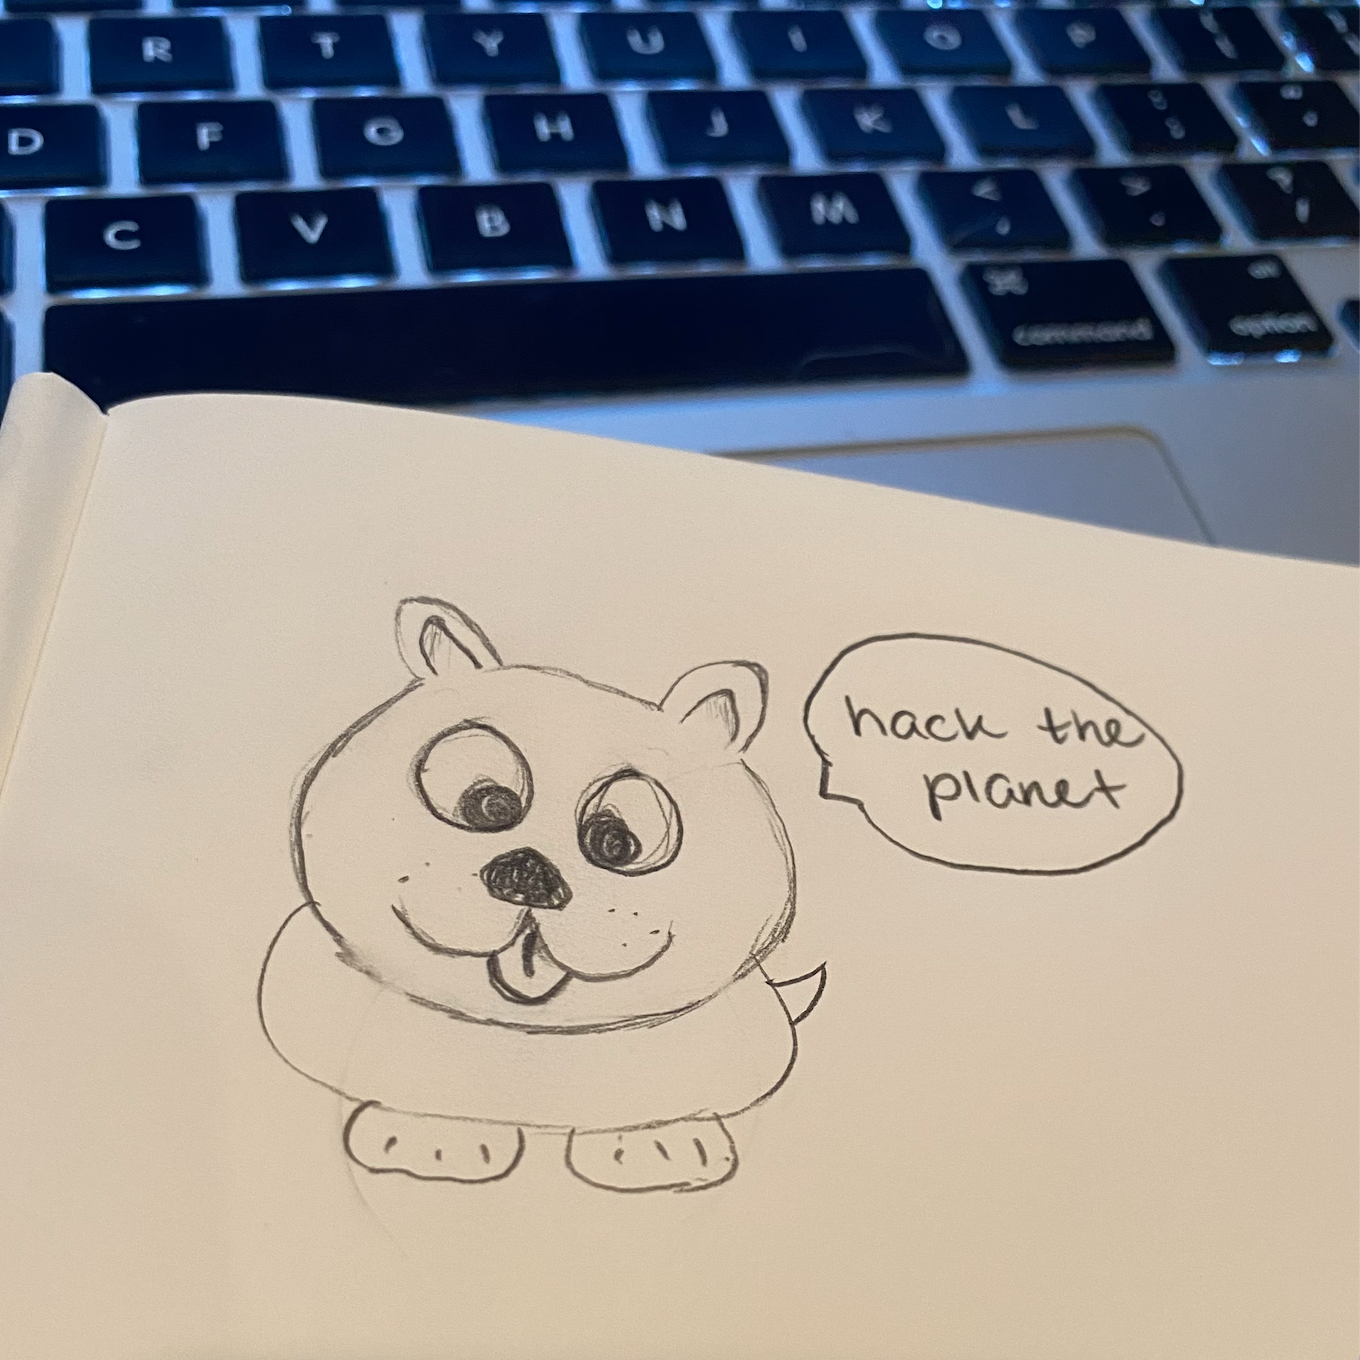 R T Y U I O P { [
D F G H J K L : ; " '
C V B N M < , > . ? /
⌘ alt
command option
hack the
planet